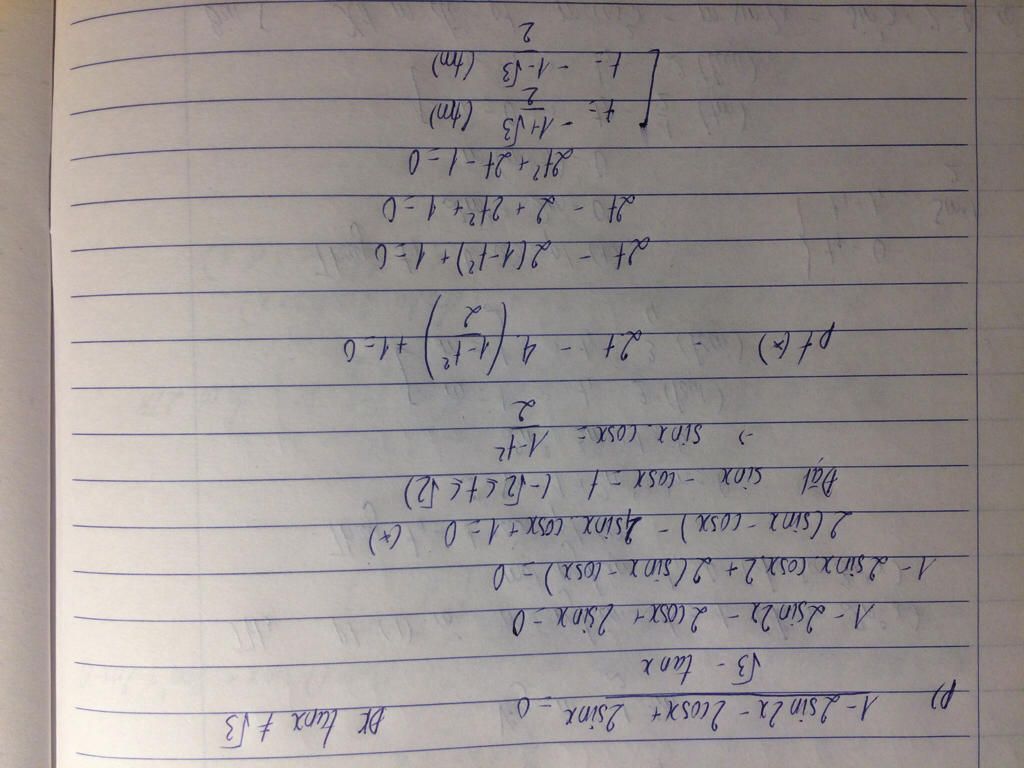 p) (1-2sin2x - 2cosx + 2sinx)/(√3 - tanx) = 0 ĐK tanx ≠ √3
1 - 2sin2x - 2cosx + 2sinx = 0
1 - 2sinx cosx.2 + 2(sinx - cosx) = 0
2(sinx - cosx) - 4sinx cosx + 1 = 0 (*)
Đặt sinx - cosx = t (-√2 ≤ t ≤ √2)
→ sinx cosx = (1-t²)/2
pt (*) - 2t - 4.((1-t²)/2) + 1 = 0
2t - 2(1-t²) + 1 = 0
2t - 2 + 2t² + 1 = 0
2t² + 2t - 1 = 0
[ t = (-1+√3)/2 (tm)
t = (-1-√3)/2 (tm)